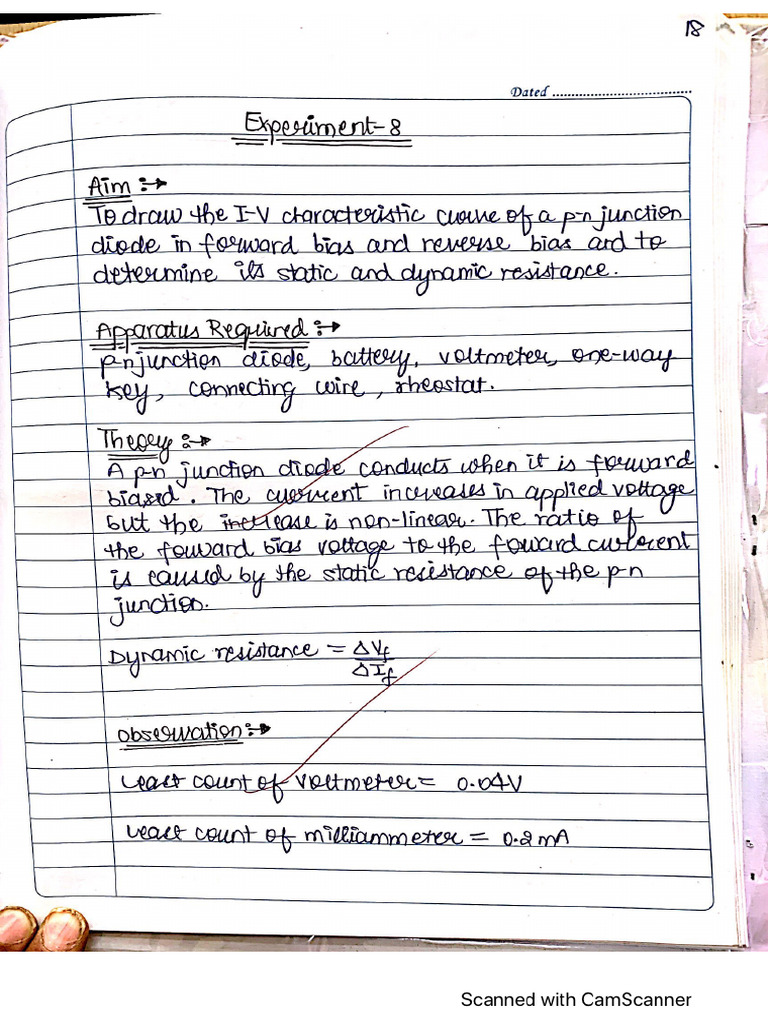 18
Dated
Experiment-8
Aim :→
To draw the I-V characteristic curve of a p-n junction
diode in forward bias and reverse bias and to
determine its static and dynamic resistance.
Apparatus Required :→
p-n junction diode, battery, voltmeter, one-way
key, connecting wire, rheostat.
Theory :→
A p-n junction diode conducts when it is forward
biased. The current increases in applied voltage
but the increase is non-linear. The ratio of
the forward bias voltage to the foward current
is caused by the static resistance of the p-n
junction.
Dynamic resistance = ΔVf
ΔIf
observation :→
Least count of voltmeter = 0.04V
Least count of milliammeter = 0.2 mA
Scanned with CamScanner